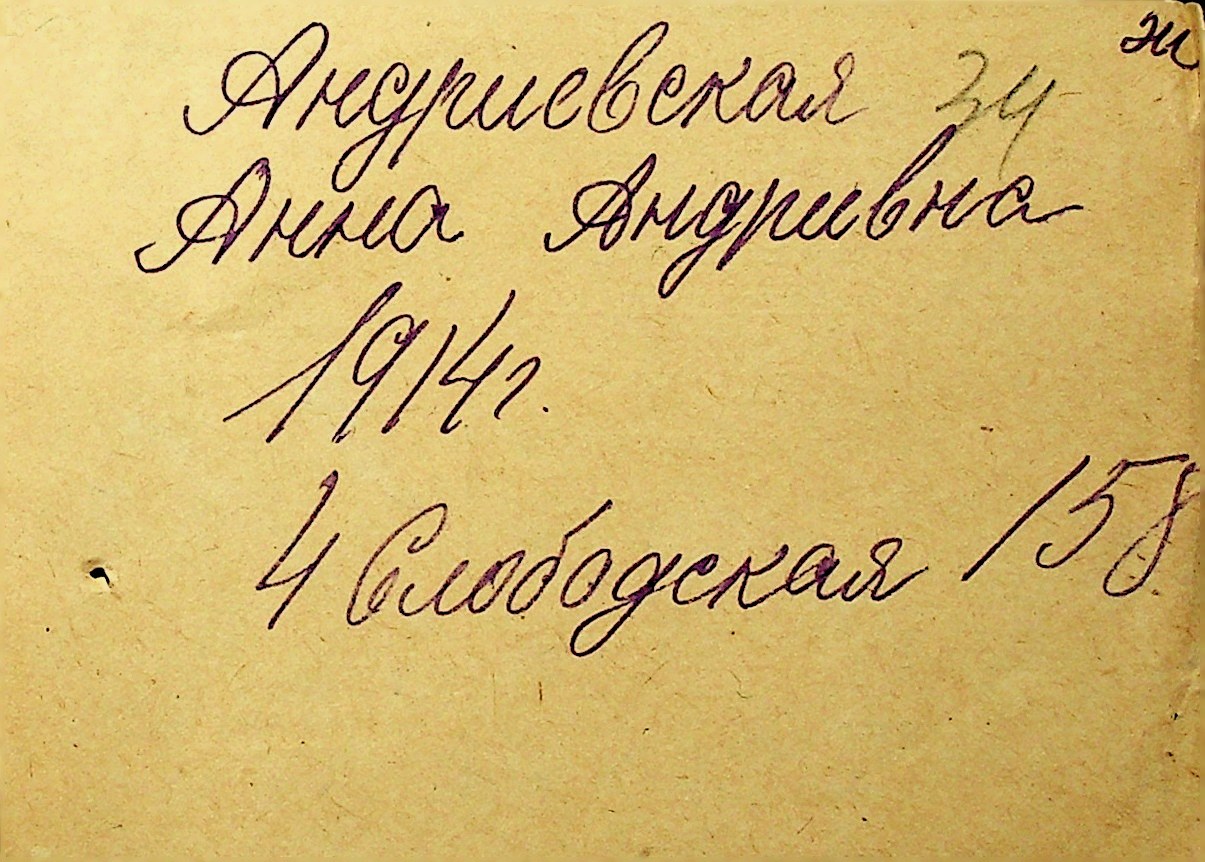 Андриевская 34
Анна Андривна
1914г.
4 Слободская 158